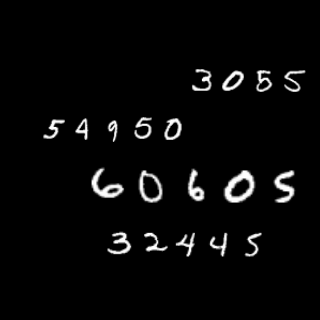 3055
54950
60605
32445